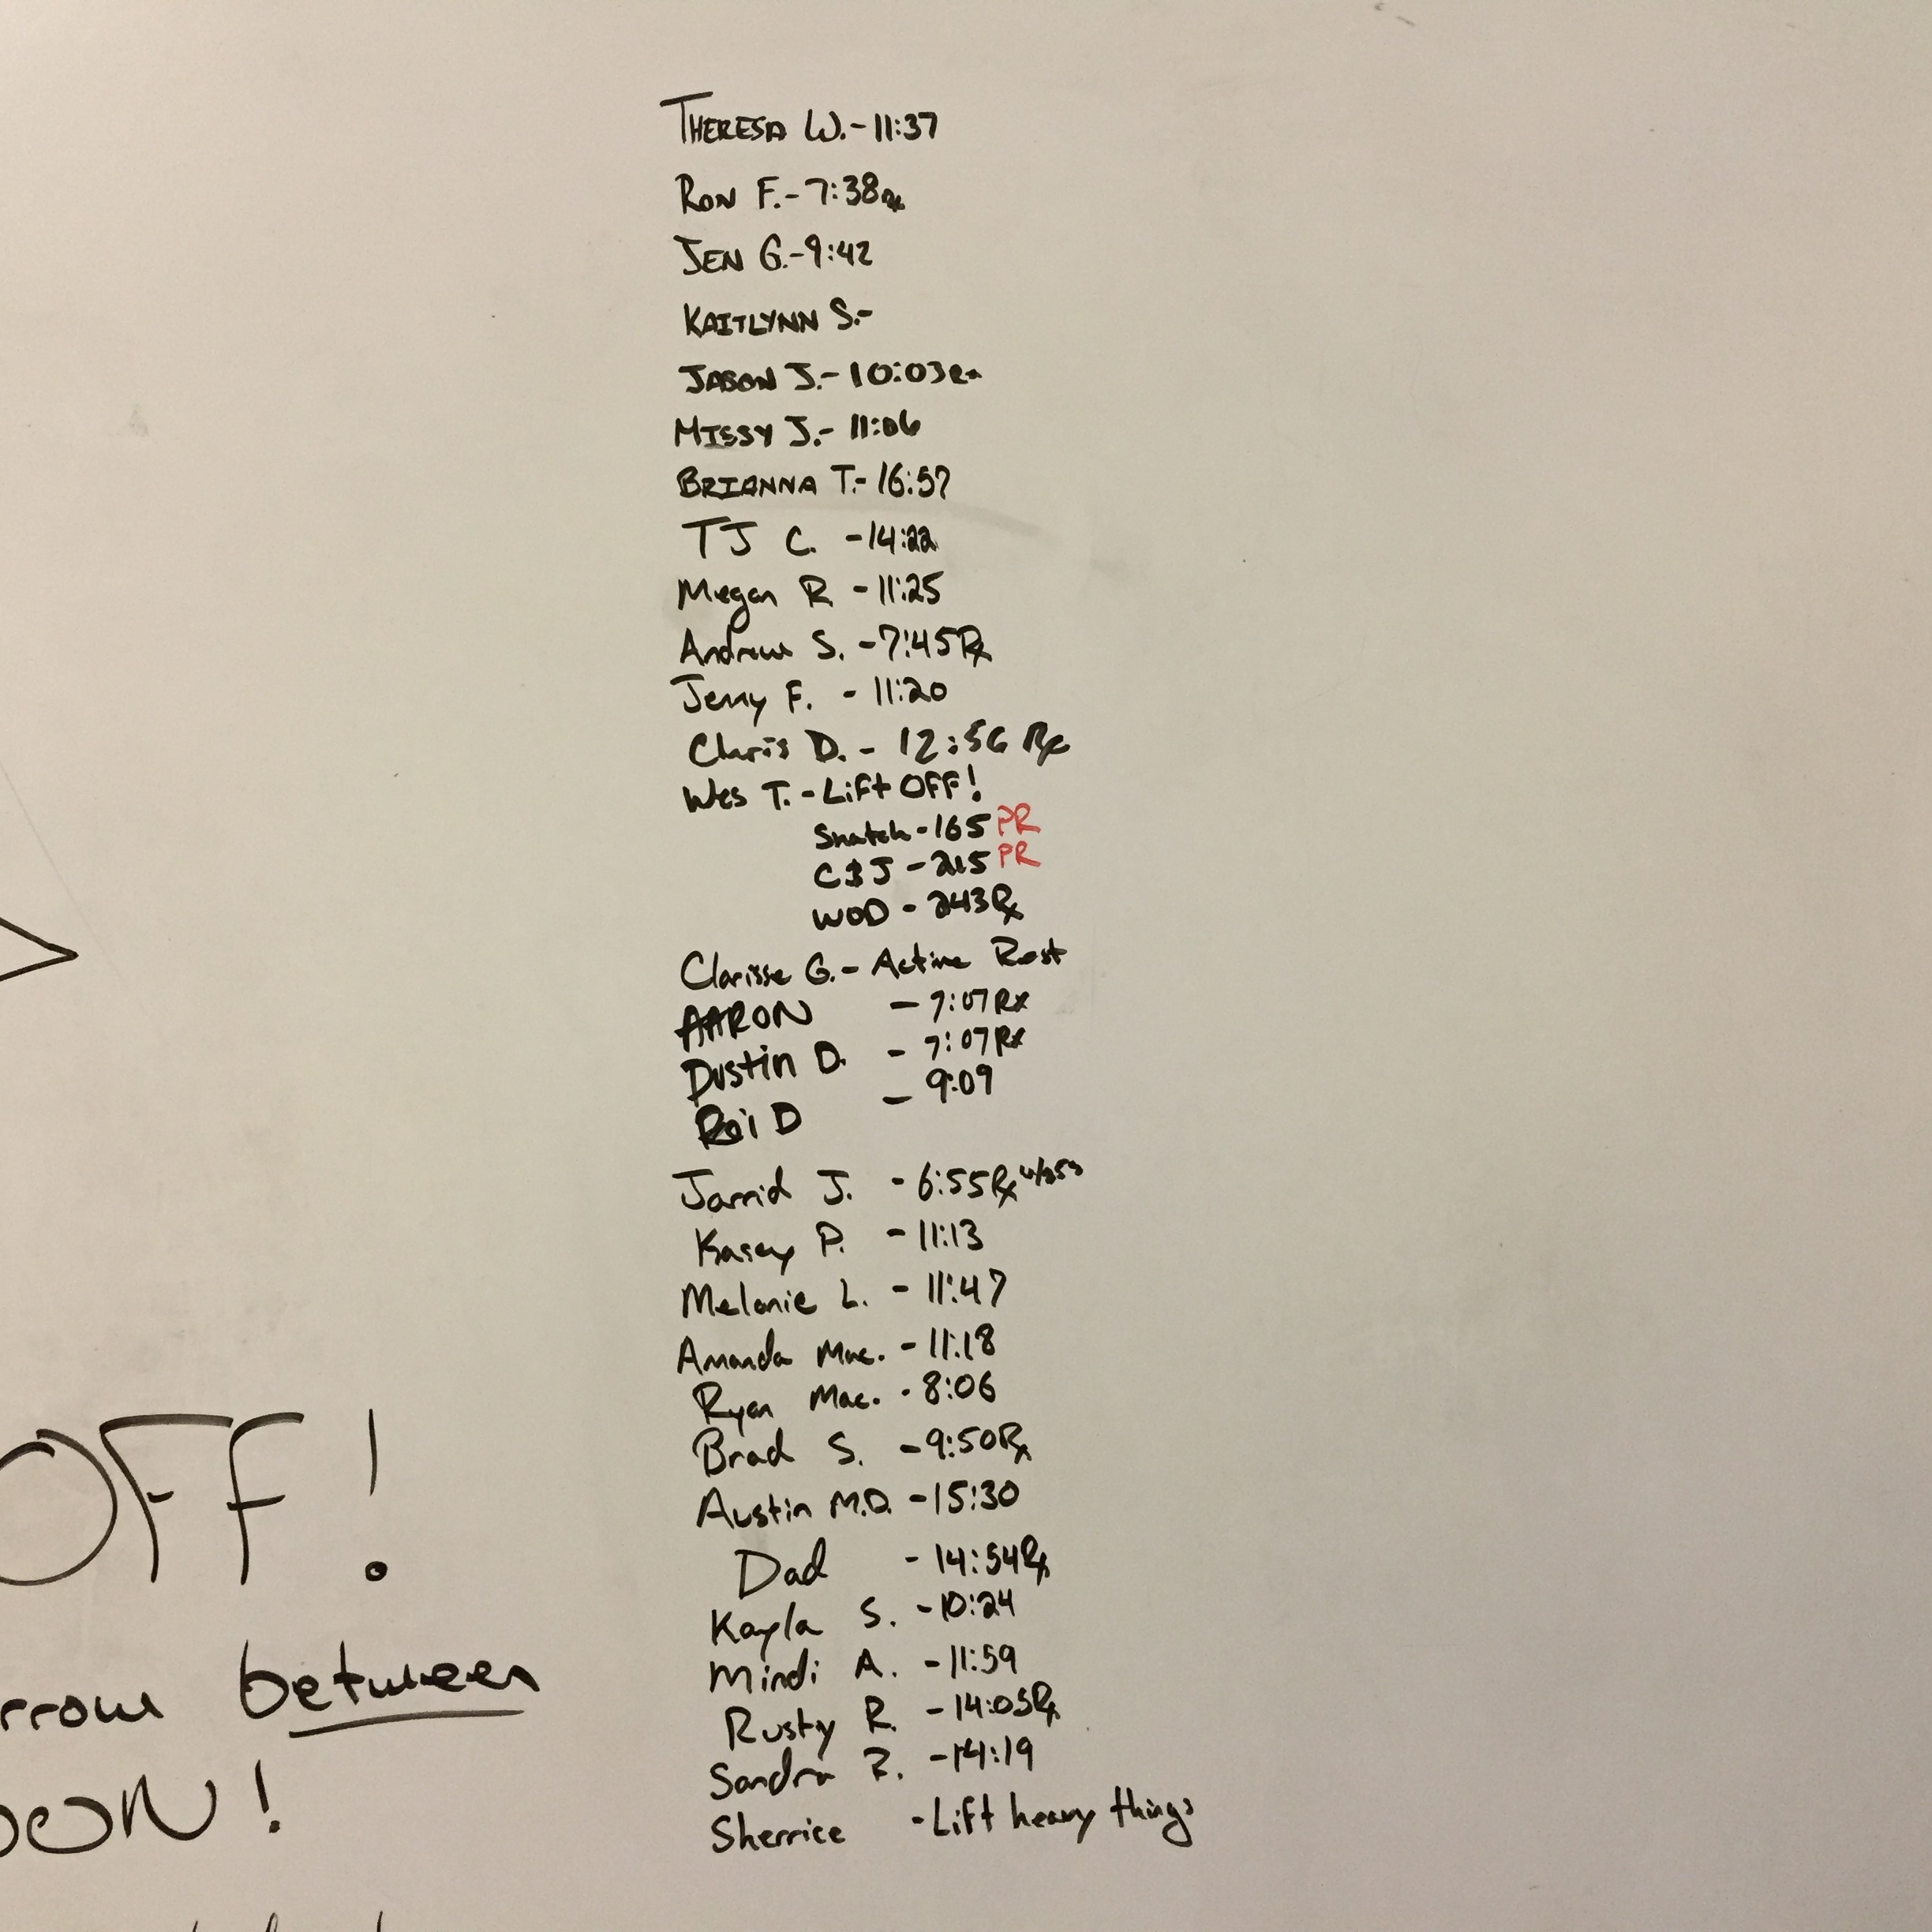 THERESA W.-11:37
RON F.-7:38Rx
JEN G.-9:42
KAITLYNN S.-
JASON J.-10:03Rx
MISSY J.-11:06
BRIANNA T.-16:57
TJ C. -14:22
Megan R -11:25
Andrew S. -7:45Rx
Jerry F. - 11:20
Chris D. - 12:56 Rx
Wes T. - Lift OFF!
Snatch - 165 PR
C&J - 215 PR
WOD - 243Rx
Clarisse G. - Active Rest
AARON - 7:07Rx
Dustin D. - 7:07Rx
Roi D - 9:09
Jarrid J. - 6:55Rx
Kasey P. - 11:13
Melanie L. - 11:47
Amanda Mac. - 11:18
Ryan Mac. - 8:06
Brad S. - 9:50Rx
Austin M.D. -15:30
Dad - 14:54Rx
Kayla S. -10:24
Mindi A. -11:59
Rusty R. -14:05Rx
Sandra R. -14:19
Sherrice -Lift heavy things
OFF!
rrow between
OON!